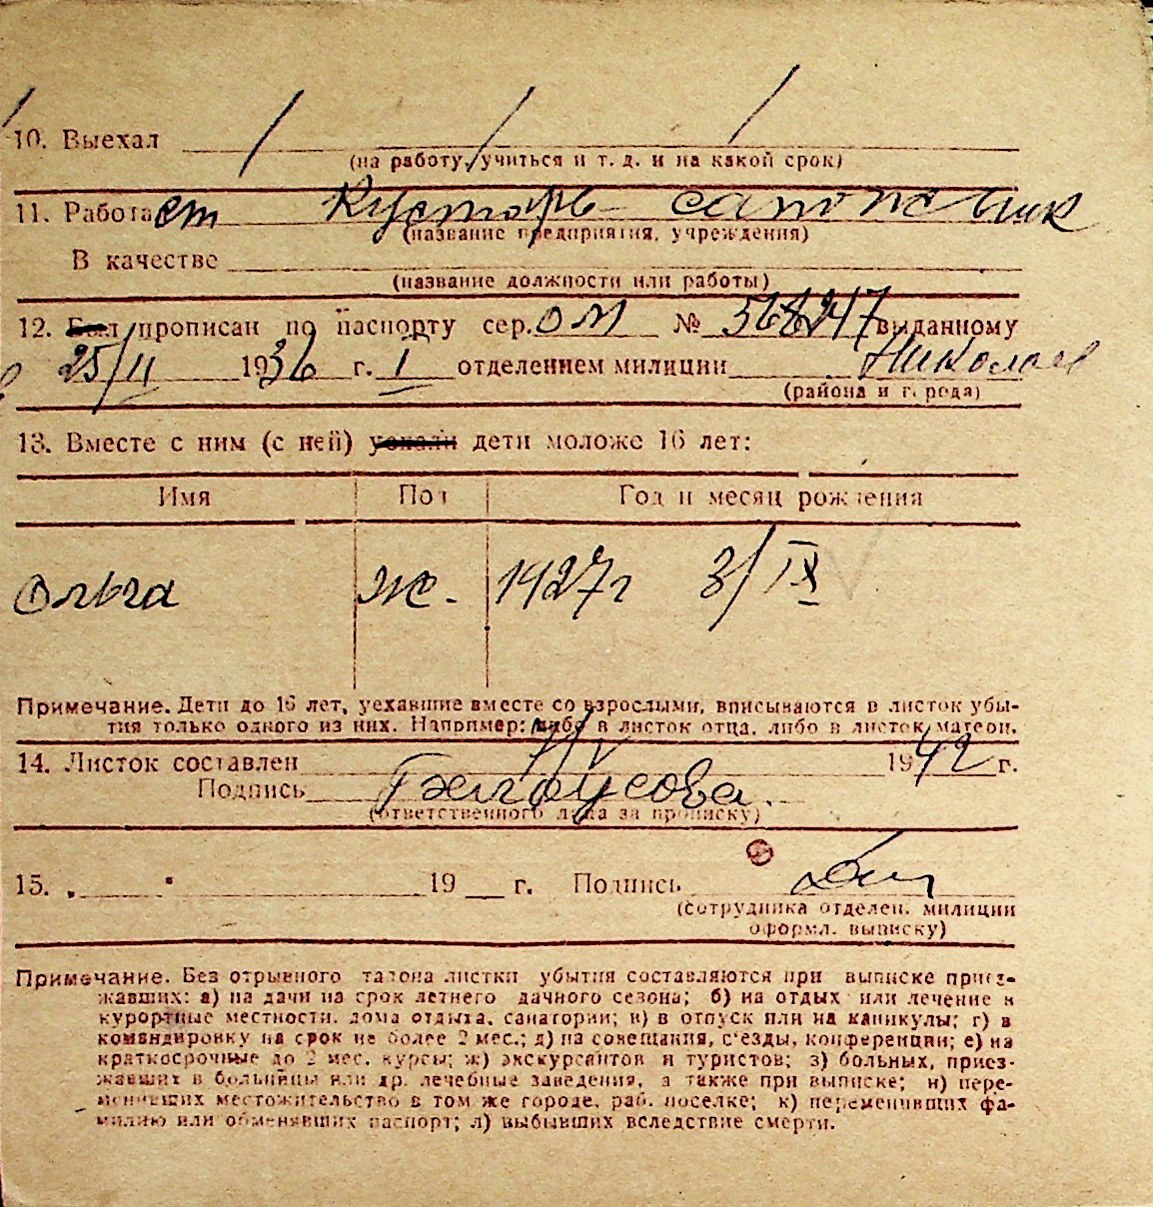 10. Выехал
(на работу, учиться и т. д. и на какой срок)
11. Работает Кустарь сапожник
(название предприятия, учреждения)
В качестве
(название должности или работы)
12. Был прописан по паспорту сер. ОМ № выданному
25/II 1936 г. I отделением милиции Николаев
(района и города)
13. Вместе с ним (с ней) уехали дети моложе 16 лет:
Имя Пол Год и месяц рождения
Ольга ж. 1927 г 3/IX
Примечание. Дети до 16 лет, уехавшие вместе со взрослыми, вписываются в листок убы-
тия только одного из них. Например: либо в листок отца, либо в листок матери.
14. Листок составлен 1942 г.
Подпись Белоусова.
(ответственного лица за прописку)
15. „ " 19 г. Подпись
(сотрудника отделен. милиции
оформл. выписку)
Примечание. Без отрывного талона листки убытия составляются при выписке приез-
жавших: а) на дачи на срок летнего дачного сезона; б) на отдых или лечение в
курортные местности, дома отдыха, санатории; в) в отпуск или на каникулы; г) в
командировку на срок не более 2 мес.; д) на совещания, съезды, конференции; е) на
краткосрочные до 2 мес. курсы; ж) экскурсантов и туристов; з) больных, приез-
жавших в больницы или др. лечебные заведения, а также при выписке; и) пере-
менивших местожительство в том же городе, раб. поселке; к) переменивших фа-
милию или обменявших паспорт; л) выбывших вследствие смерти.